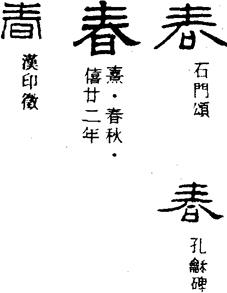 春
石門頌
春
孔龢碑
春
熹·春秋·
僖廿二年
春
漢印徵